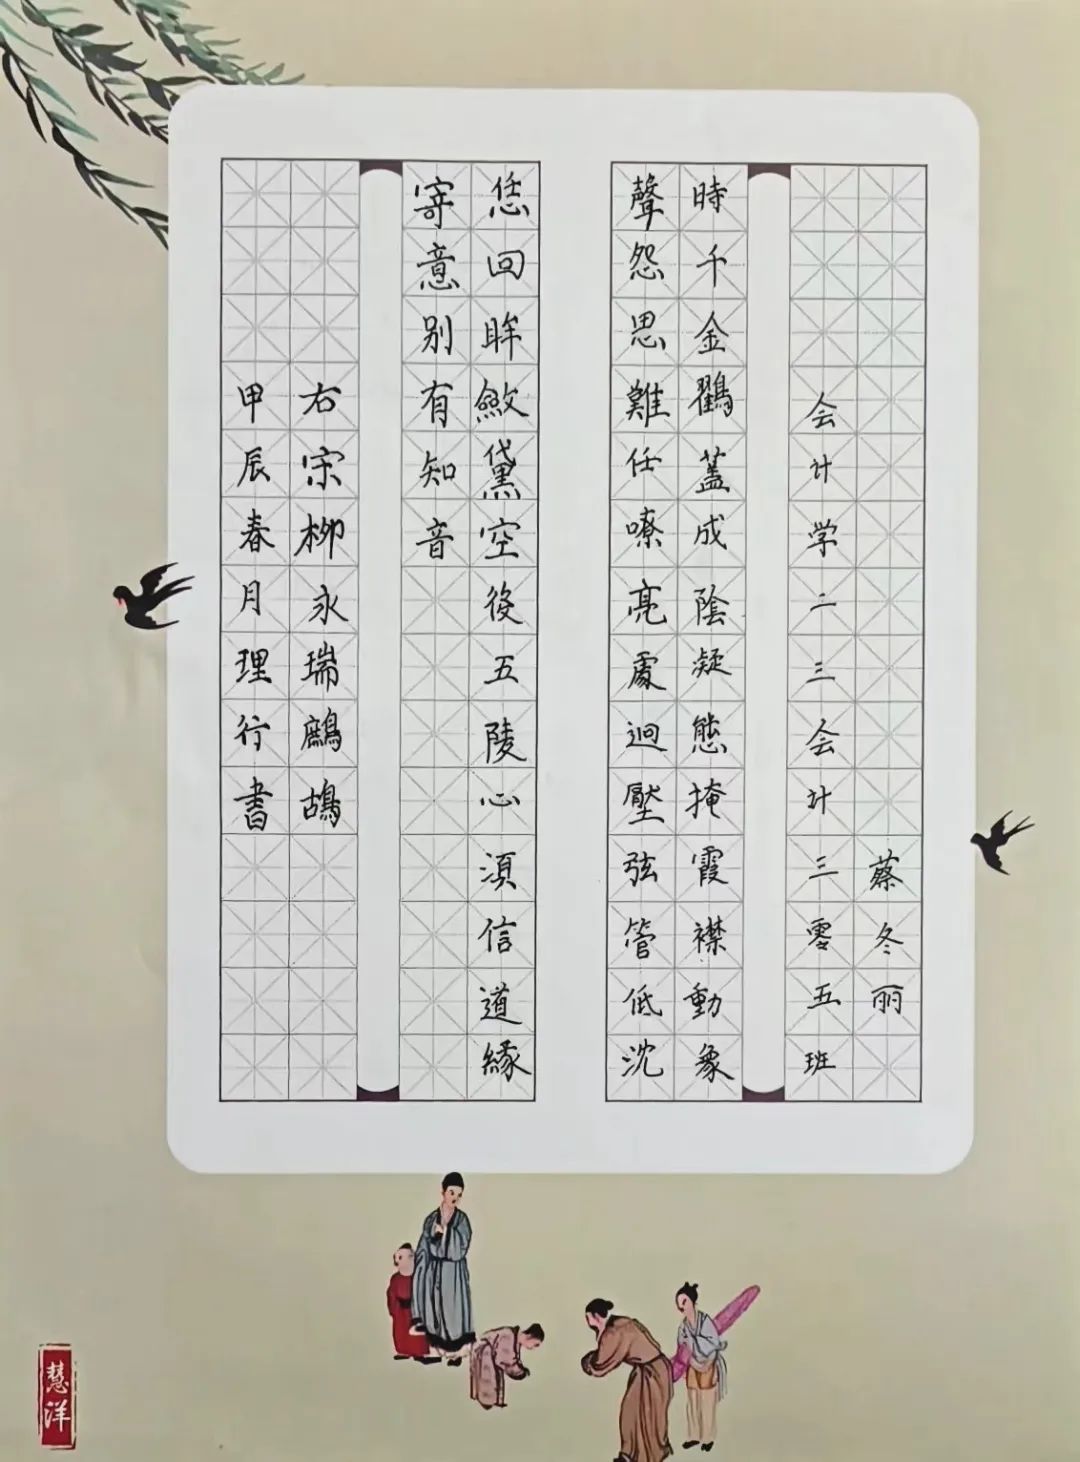 蔡冬丽
会计学二三会计三零五班
時千金翳蓋成陰凝態掩霞襟動象
聲怨思難任嘹亮處迥壓弦管低沈
恁回眸斂黛空役五陵心須信道緣
寄意別有知音
右宋柳永瑞鷓鴣
甲辰春月理行書
慧洋